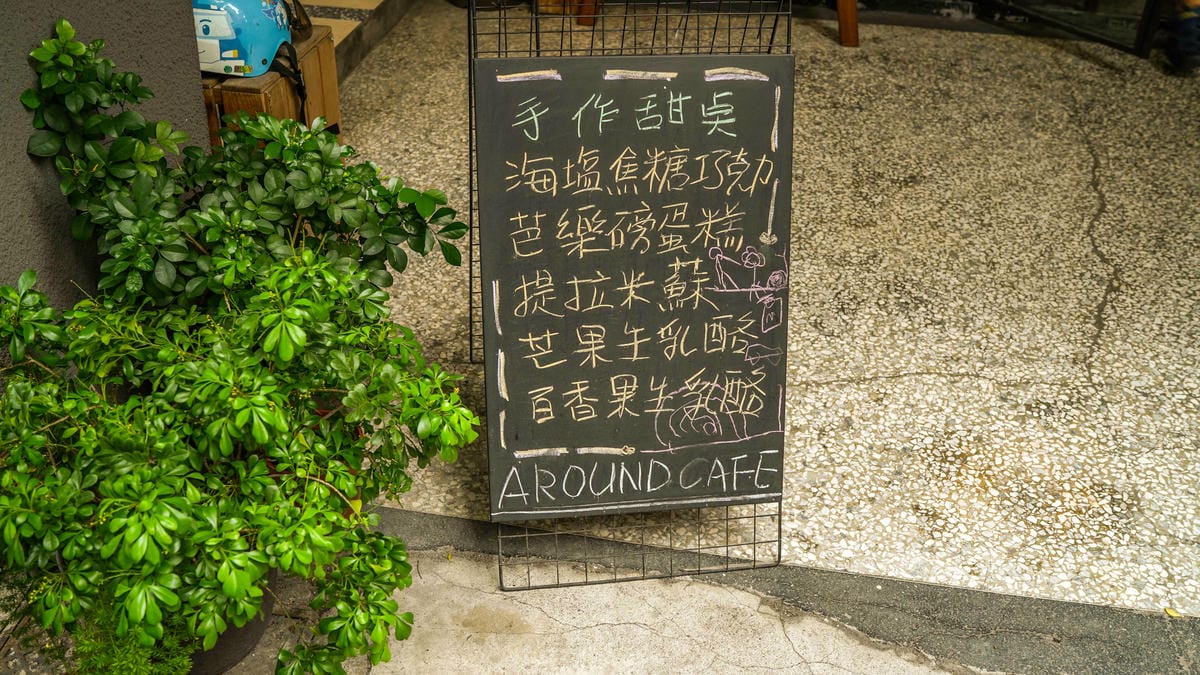 手作甜点
海塩焦糖巧克力
芭樂磅蛋糕
提拉米蘇
芒果生乳酪
百香果生乳酪
AROUND CAFE